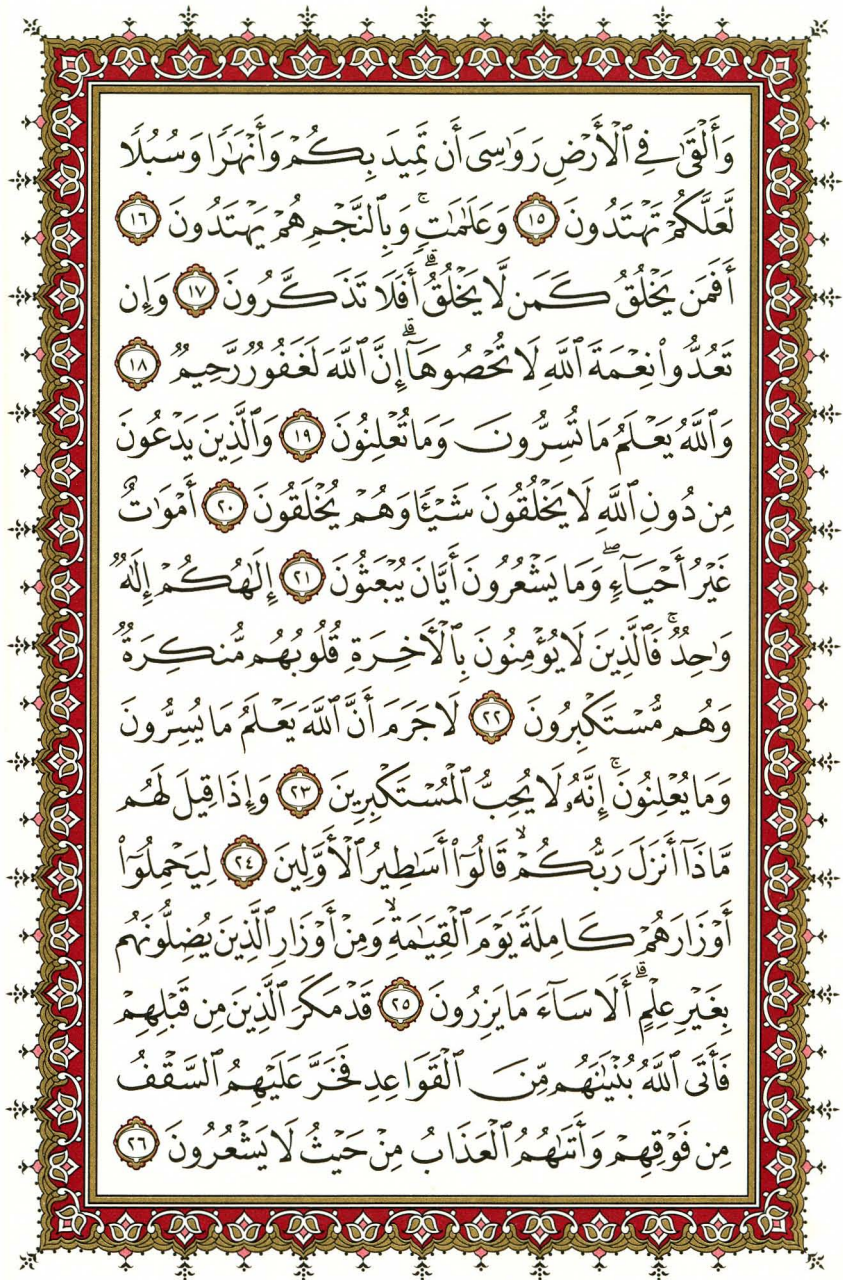 وَأَلْقَىٰ فِي ٱلْأَرْضِ رَوَٰسِىَ أَن تَمِيدَ بِكُمْ وَأَنْهَٰرًا وَسُبُلًا
لَّعَلَّكُمْ تَهْتَدُونَ ١٥ وَعَلَٰمَٰتٍۚ وَبِٱلنَّجْمِ هُمْ يَهْتَدُونَ ١٦
أَفَمَن يَخْلُقُ كَمَن لَّا يَخْلُقُۗ أَفَلَا تَذَكَّرُونَ ١٧ وَإِن
تَعُدُّوا۟ نِعْمَةَ ٱللَّهِ لَا تُحْصُوهَآۗ إِنَّ ٱللَّهَ لَغَفُورٌ رَّحِيمٌ ١٨
وَٱللَّهُ يَعْلَمُ مَا تُسِرُّونَ وَمَا تُعْلِنُونَ ١٩ وَٱلَّذِينَ يَدْعُونَ
مِن دُونِ ٱللَّهِ لَا يَخْلُقُونَ شَيْـًٔا وَهُمْ يُخْلَقُونَ ٢٠ أَمْوَٰتٌ
غَيْرُ أَحْيَآءٍۖ وَمَا يَشْعُرُونَ أَيَّانَ يُبْعَثُونَ ٢١ إِلَٰهُكُمْ إِلَٰهٌ
وَٰحِدٌۚ فَٱلَّذِينَ لَا يُؤْمِنُونَ بِٱلْأَخِرَةِ قُلُوبُهُم مُّنكِرَةٌ
وَهُم مُّسْتَكْبِرُونَ ٢٢ لَا جَرَمَ أَنَّ ٱللَّهَ يَعْلَمُ مَا يُسِرُّونَ
وَمَا يُعْلِنُونَۚ إِنَّهُۥ لَا يُحِبُّ ٱلْمُسْتَكْبِرِينَ ٢٣ وَإِذَا قِيلَ لَهُم
مَّاذَآ أَنزَلَ رَبُّكُمْۙ قَالُوٓا۟ أَسَٰطِيرُ ٱلْأَوَّلِينَ ٢٤ لِيَحْمِلُوٓا۟
أَوْزَارَهُمْ كَامِلَةً يَوْمَ ٱلْقِيَٰمَةِۙ وَمِنْ أَوْزَارِ ٱلَّذِينَ يُضِلُّونَهُم
بِغَيْرِ عِلْمٍۗ أَلَا سَآءَ مَا يَزِرُونَ ٢٥ قَدْ مَكَرَ ٱلَّذِينَ مِن قَبْلِهِمْ
فَأَتَى ٱللَّهُ بُنْيَٰنَهُم مِّنَ ٱلْقَوَاعِدِ فَخَرَّ عَلَيْهِمُ ٱلسَّقْفُ
مِن فَوْقِهِمْ وَأَتَىٰهُمُ ٱلْعَذَابُ مِنْ حَيْثُ لَا يَشْعُرُونَ ٢٦